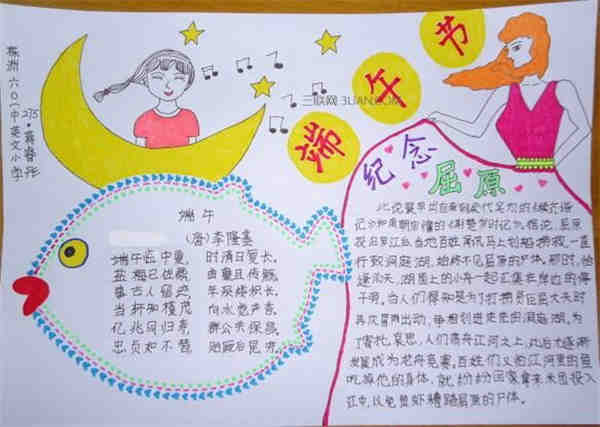 株洲六〇一中英文小学
275
端午节
三联网 3LIAN.COM
纪念屈原
端午
(唐)李隆基
端午临中夏, 时清日复长。
盐梅已佐鼎, 曲糵且传觞。
事古人留迹, 年深缕积长。
当轩知槿茂, 向水觉芦香。
亿兆同归寿, 群公共保昌。
忠贞如不替, 贻厥后昆芳。
此说最早出自南朝梁代吴均的《续齐谐
记》和南朝宗懔的《荆楚岁时记》。据说,屈原
投汨罗江后,当地百姓闻讯马上划船捞救,一直
行致洞庭湖,始终不见屈原的尸体。那时,恰
逢雨天,湖面上的小舟一起汇集在岸边的停
子旁。当人们得知是为了打捞贤臣屈大夫时
再次冒雨出动,争相划进茫茫的洞庭湖。为
了寄托哀思,人们荡舟江河之上,此后才逐渐
发展成为龙舟竞赛。百姓们又怕江河里的鱼
吃掉他的身体,就纷纷回家拿来米团投入
江中,以免鱼虾糟蹋屈原的尸体。